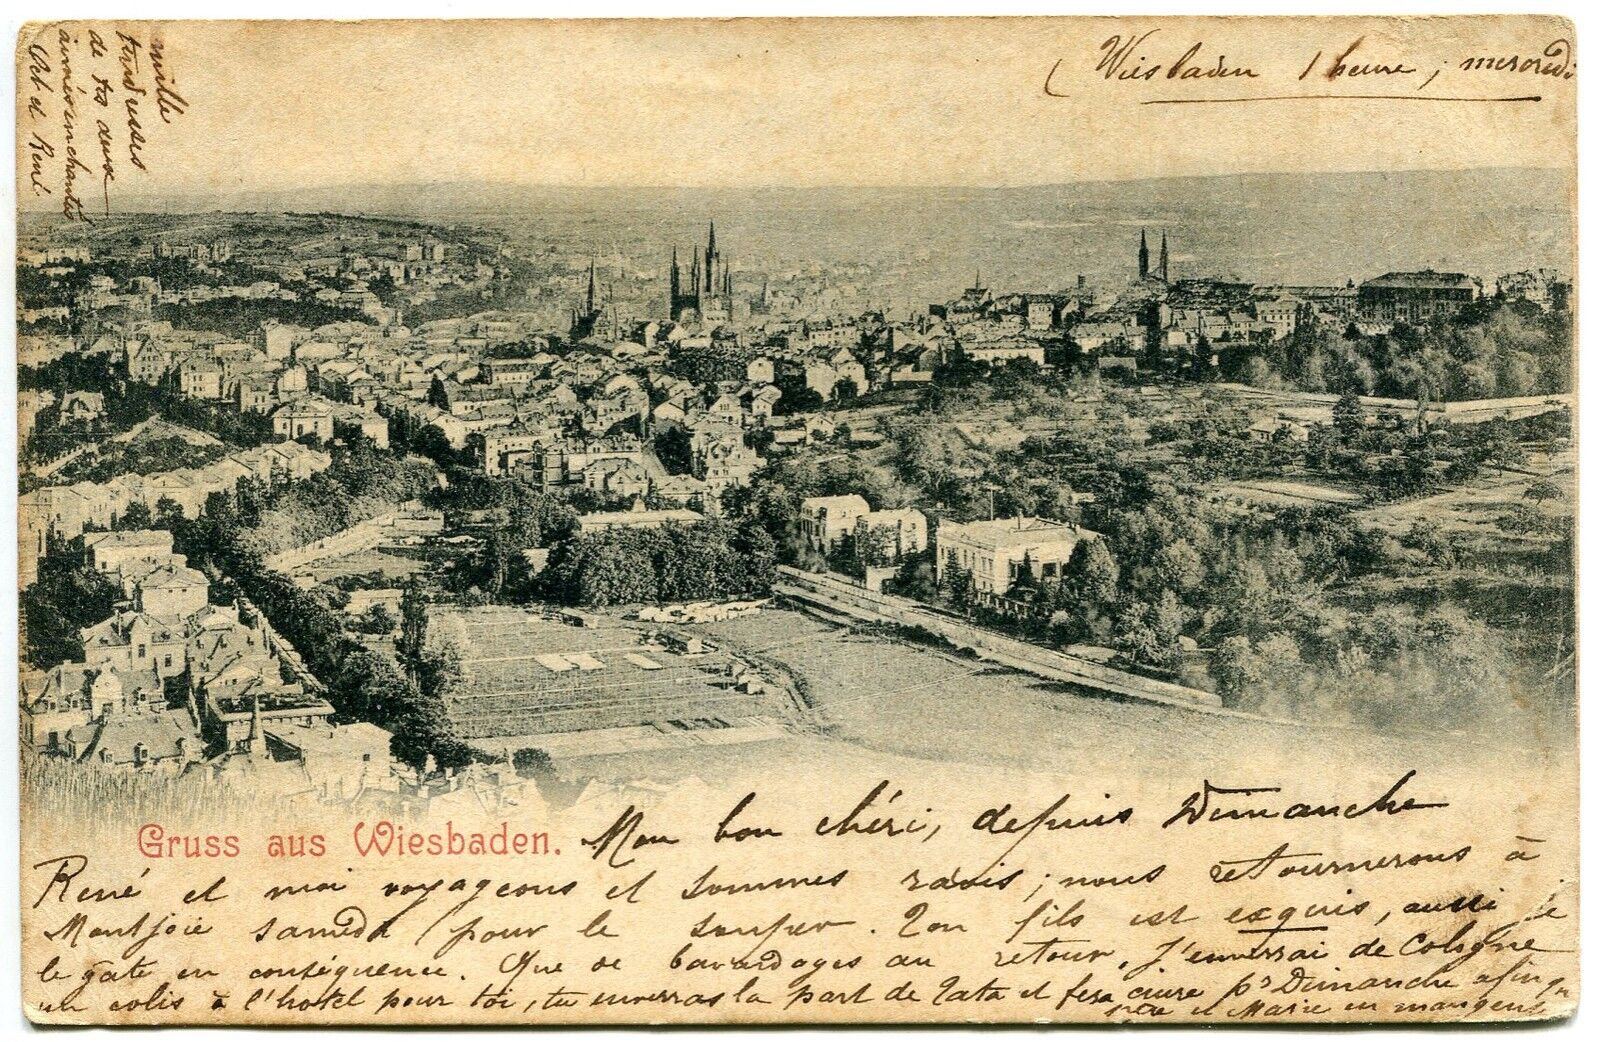 Wiesbaden 1 heure, mercredi
mille
tendresses
de tes deux
aimés enchantés
Oct et René
Gruss aus Wiesbaden.
Mon bon chéri, depuis Dimanche
René et moi voyageons et sommes ravis; nous retournerons à
Montjoie samedi pour le souper. Ton fils est exquis, aussi je
le gâte en conséquence. Que de bavardages au retour. J'enverrai de Cologne
un colis à l'hotel pour toi, tu enverras la part de Tata et fera cuire pr Dimanche afin qu
père et Marie en mangent